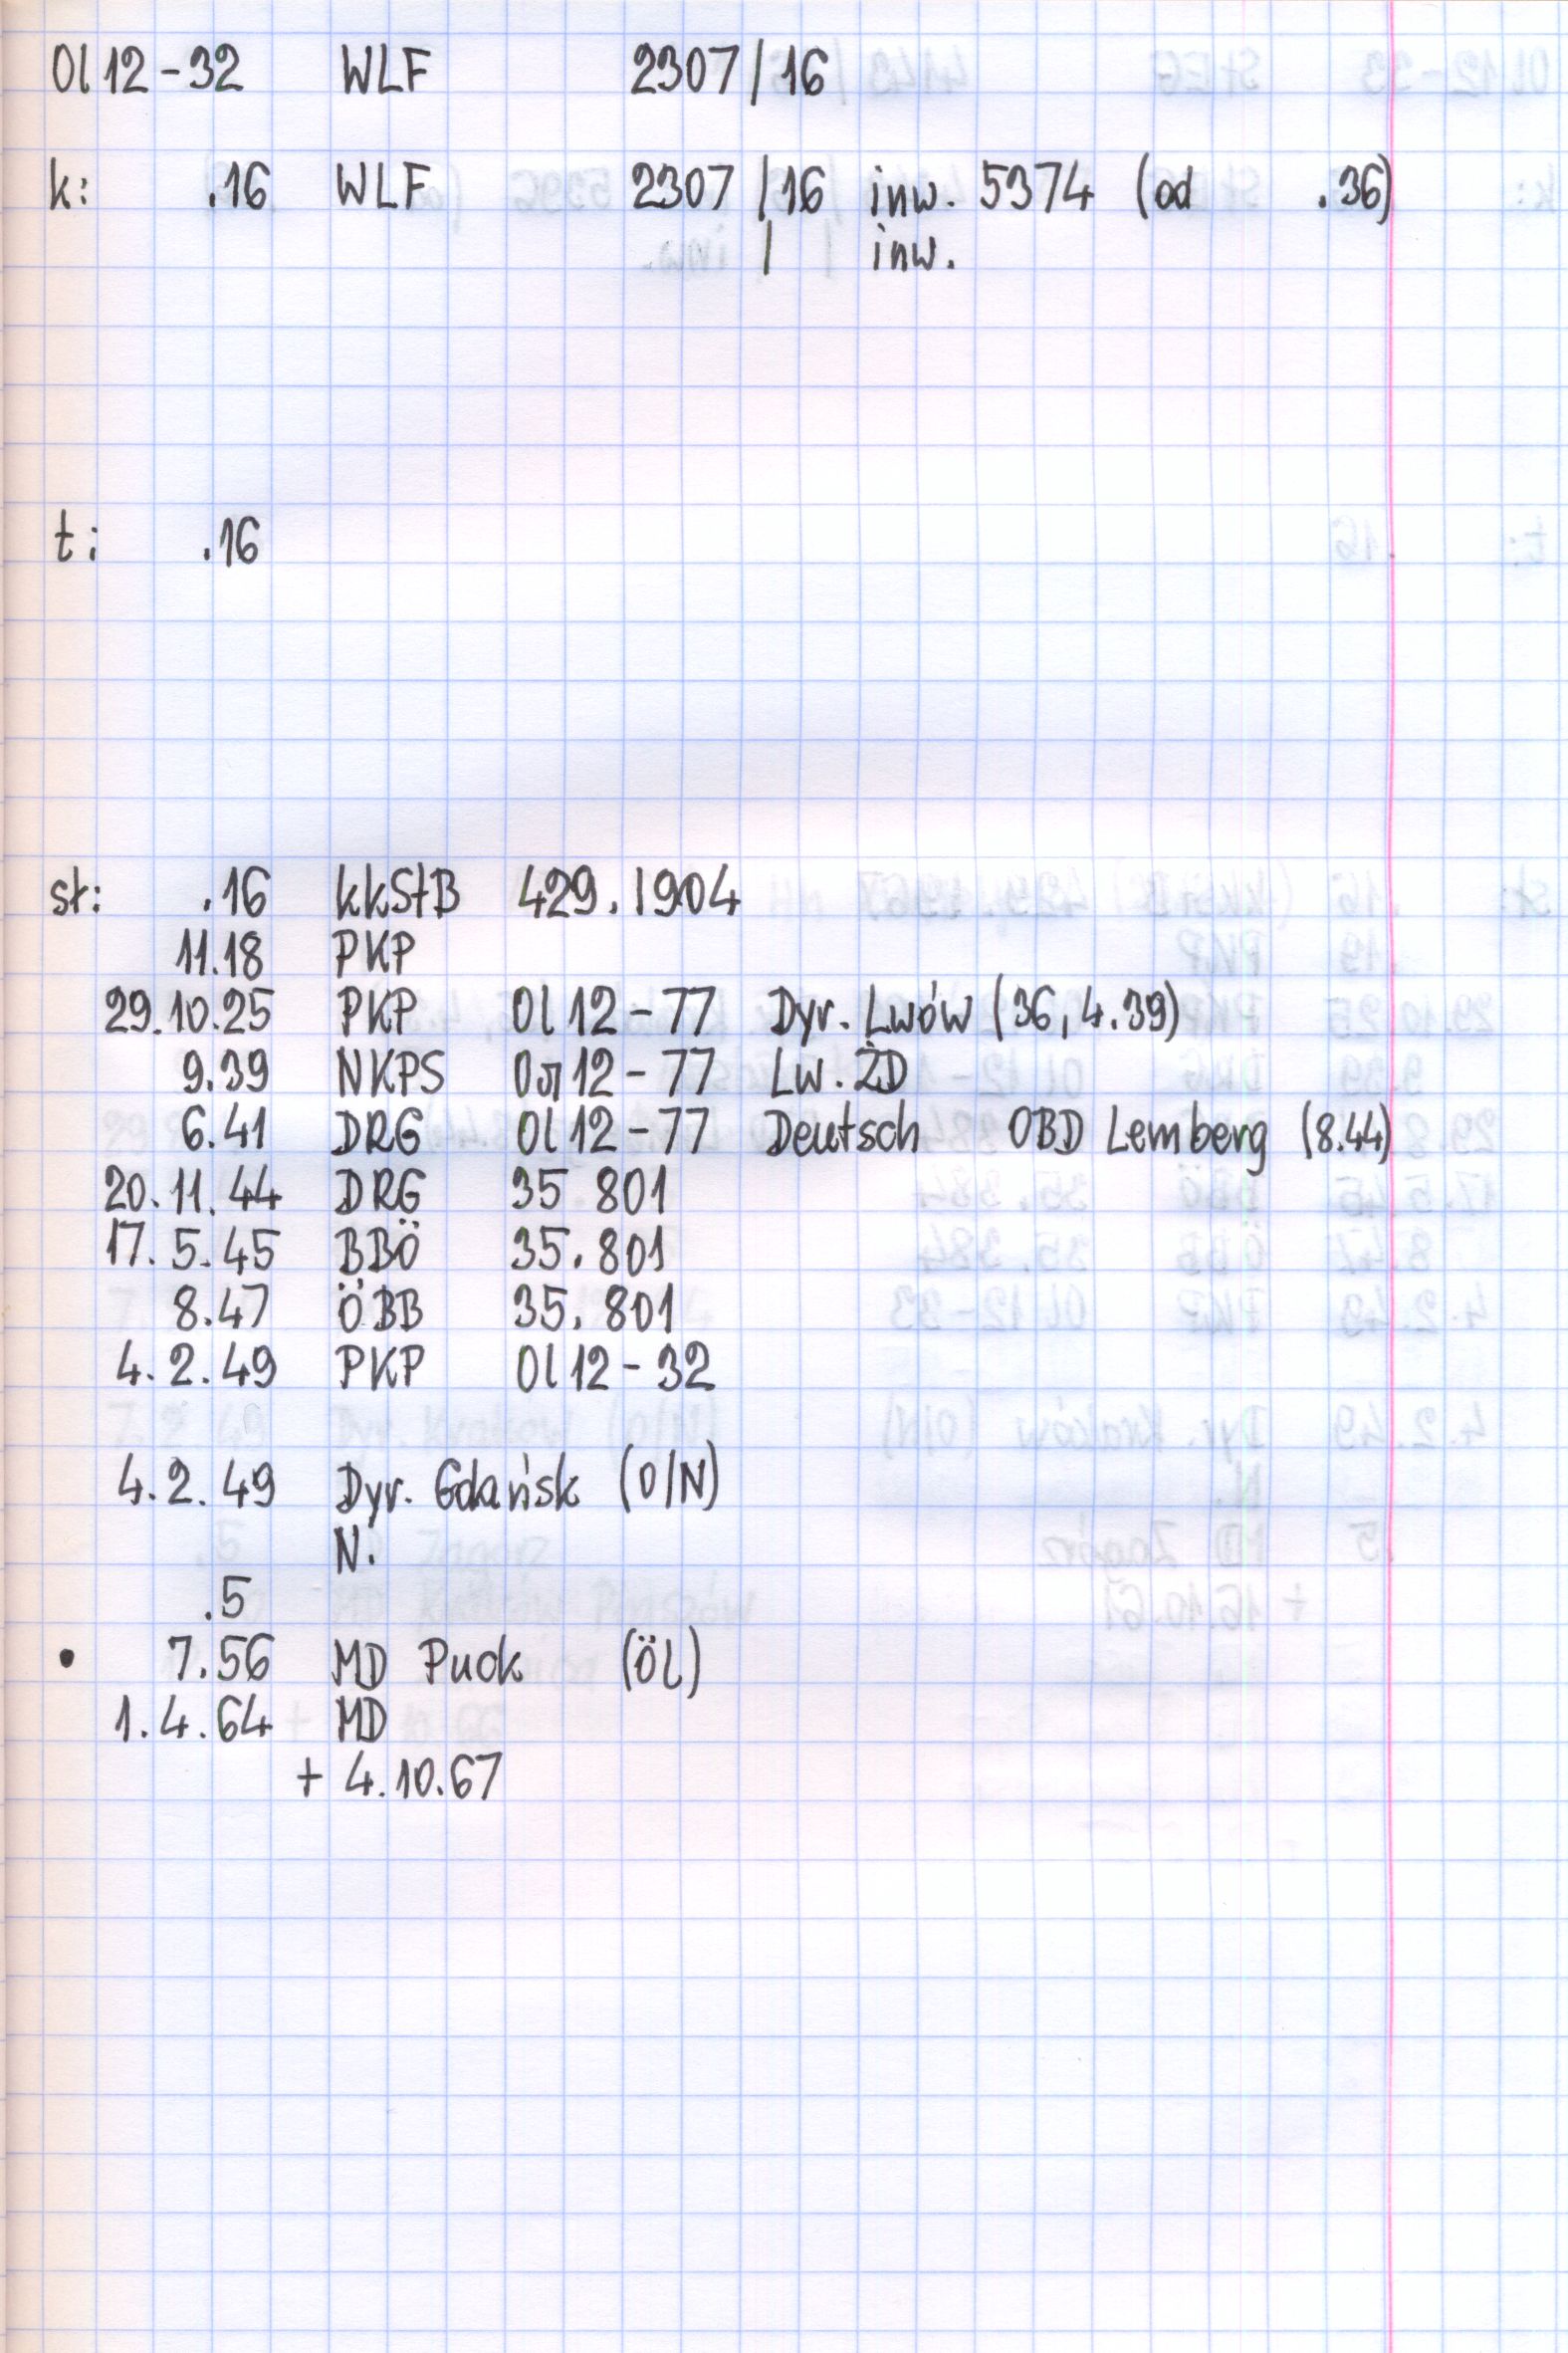 Ol 12-32 WLF 2307/16
k: .16 WLF 2307/16 inw. 5374 (od .36)
/ inw.
t: .16
st: .16 kkStB 429.1904
11.18 PKP
29.10.25 PKP Ol 12-77 Dyr. Lwów (36, 4.39)
9.39 NKPS Ол 12-77 Lw. ŻD
6.41 DRG Ol 12-77 Deutsch OBD Lemberg (8.44)
20.11.44 DRG 35 801
17.5.45 BBÖ 35.801
8.47 ÖBB 35.801
4.2.49 PKP Ol 12-32
4.2.49 Dyr. Gdańsk (O/N)
N.
.5
• 7.56 MD Puck (ÖL)
1.4.64 MD
+ 4.10.67